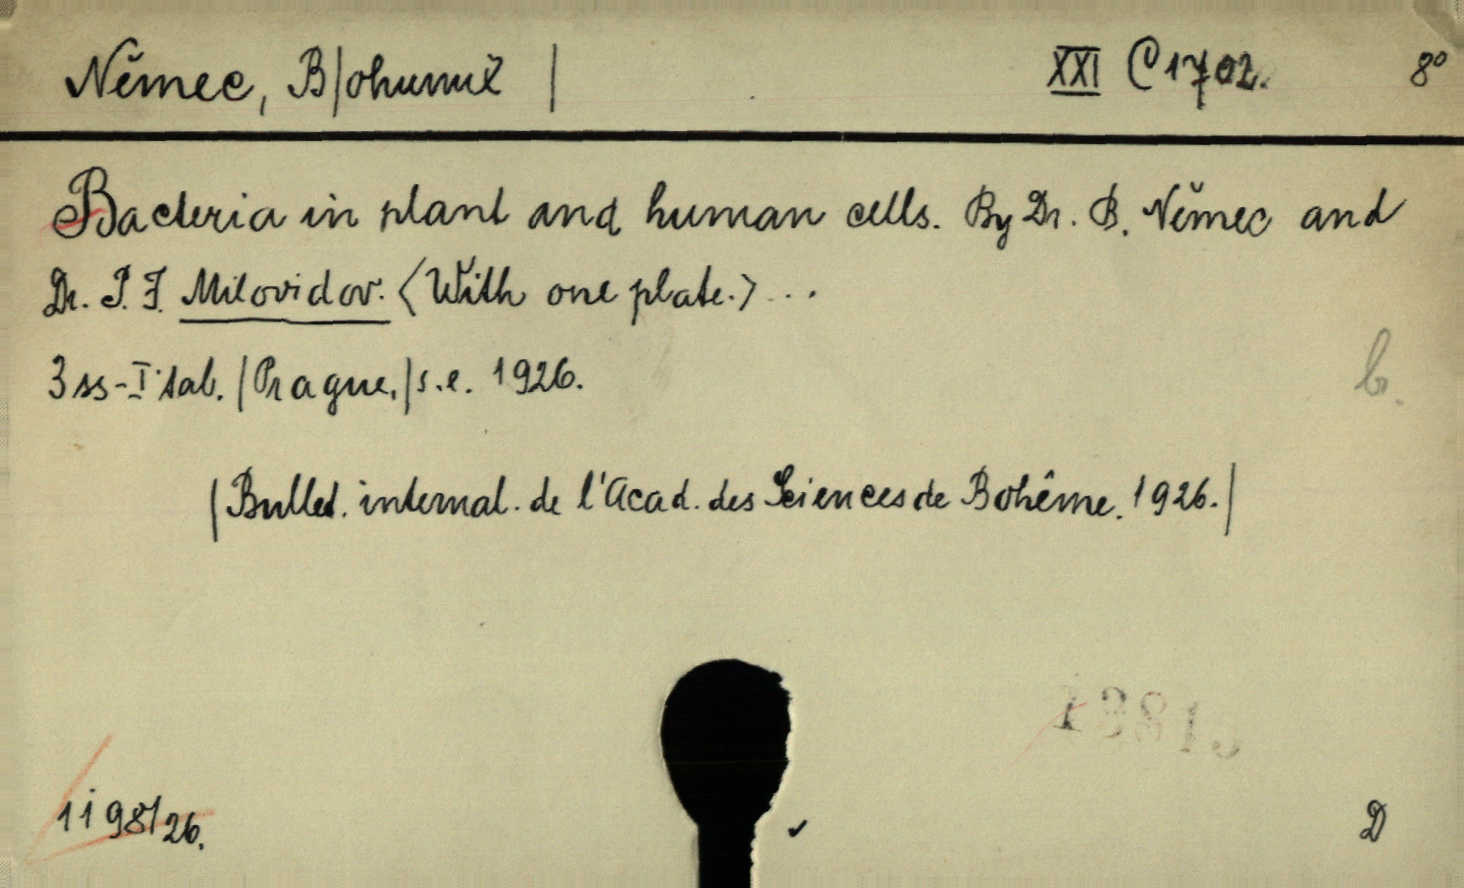 Němec, B|ohumil| XXI C 1702. 8°
Bacteria in plant and human cells. By Dr. B. Němec and
Dr. P. F. Milovidov. <With one plate.> ...
3 ss - I tab. |Prague,| s.e. 1926.
b.
|Bullet. internat. de l'Acad. des Sciences de Bohême. 1926.|
1198/26.
D